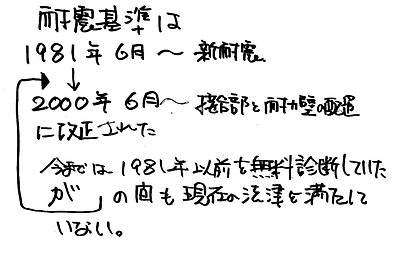 耐震基準は
1981年6月〜新耐震
↓
2000年6月〜接合部と耐力壁の配置
に改正された
今までは1981年以前を無料診断していた
が の間も現在の法律を満たして
いない。